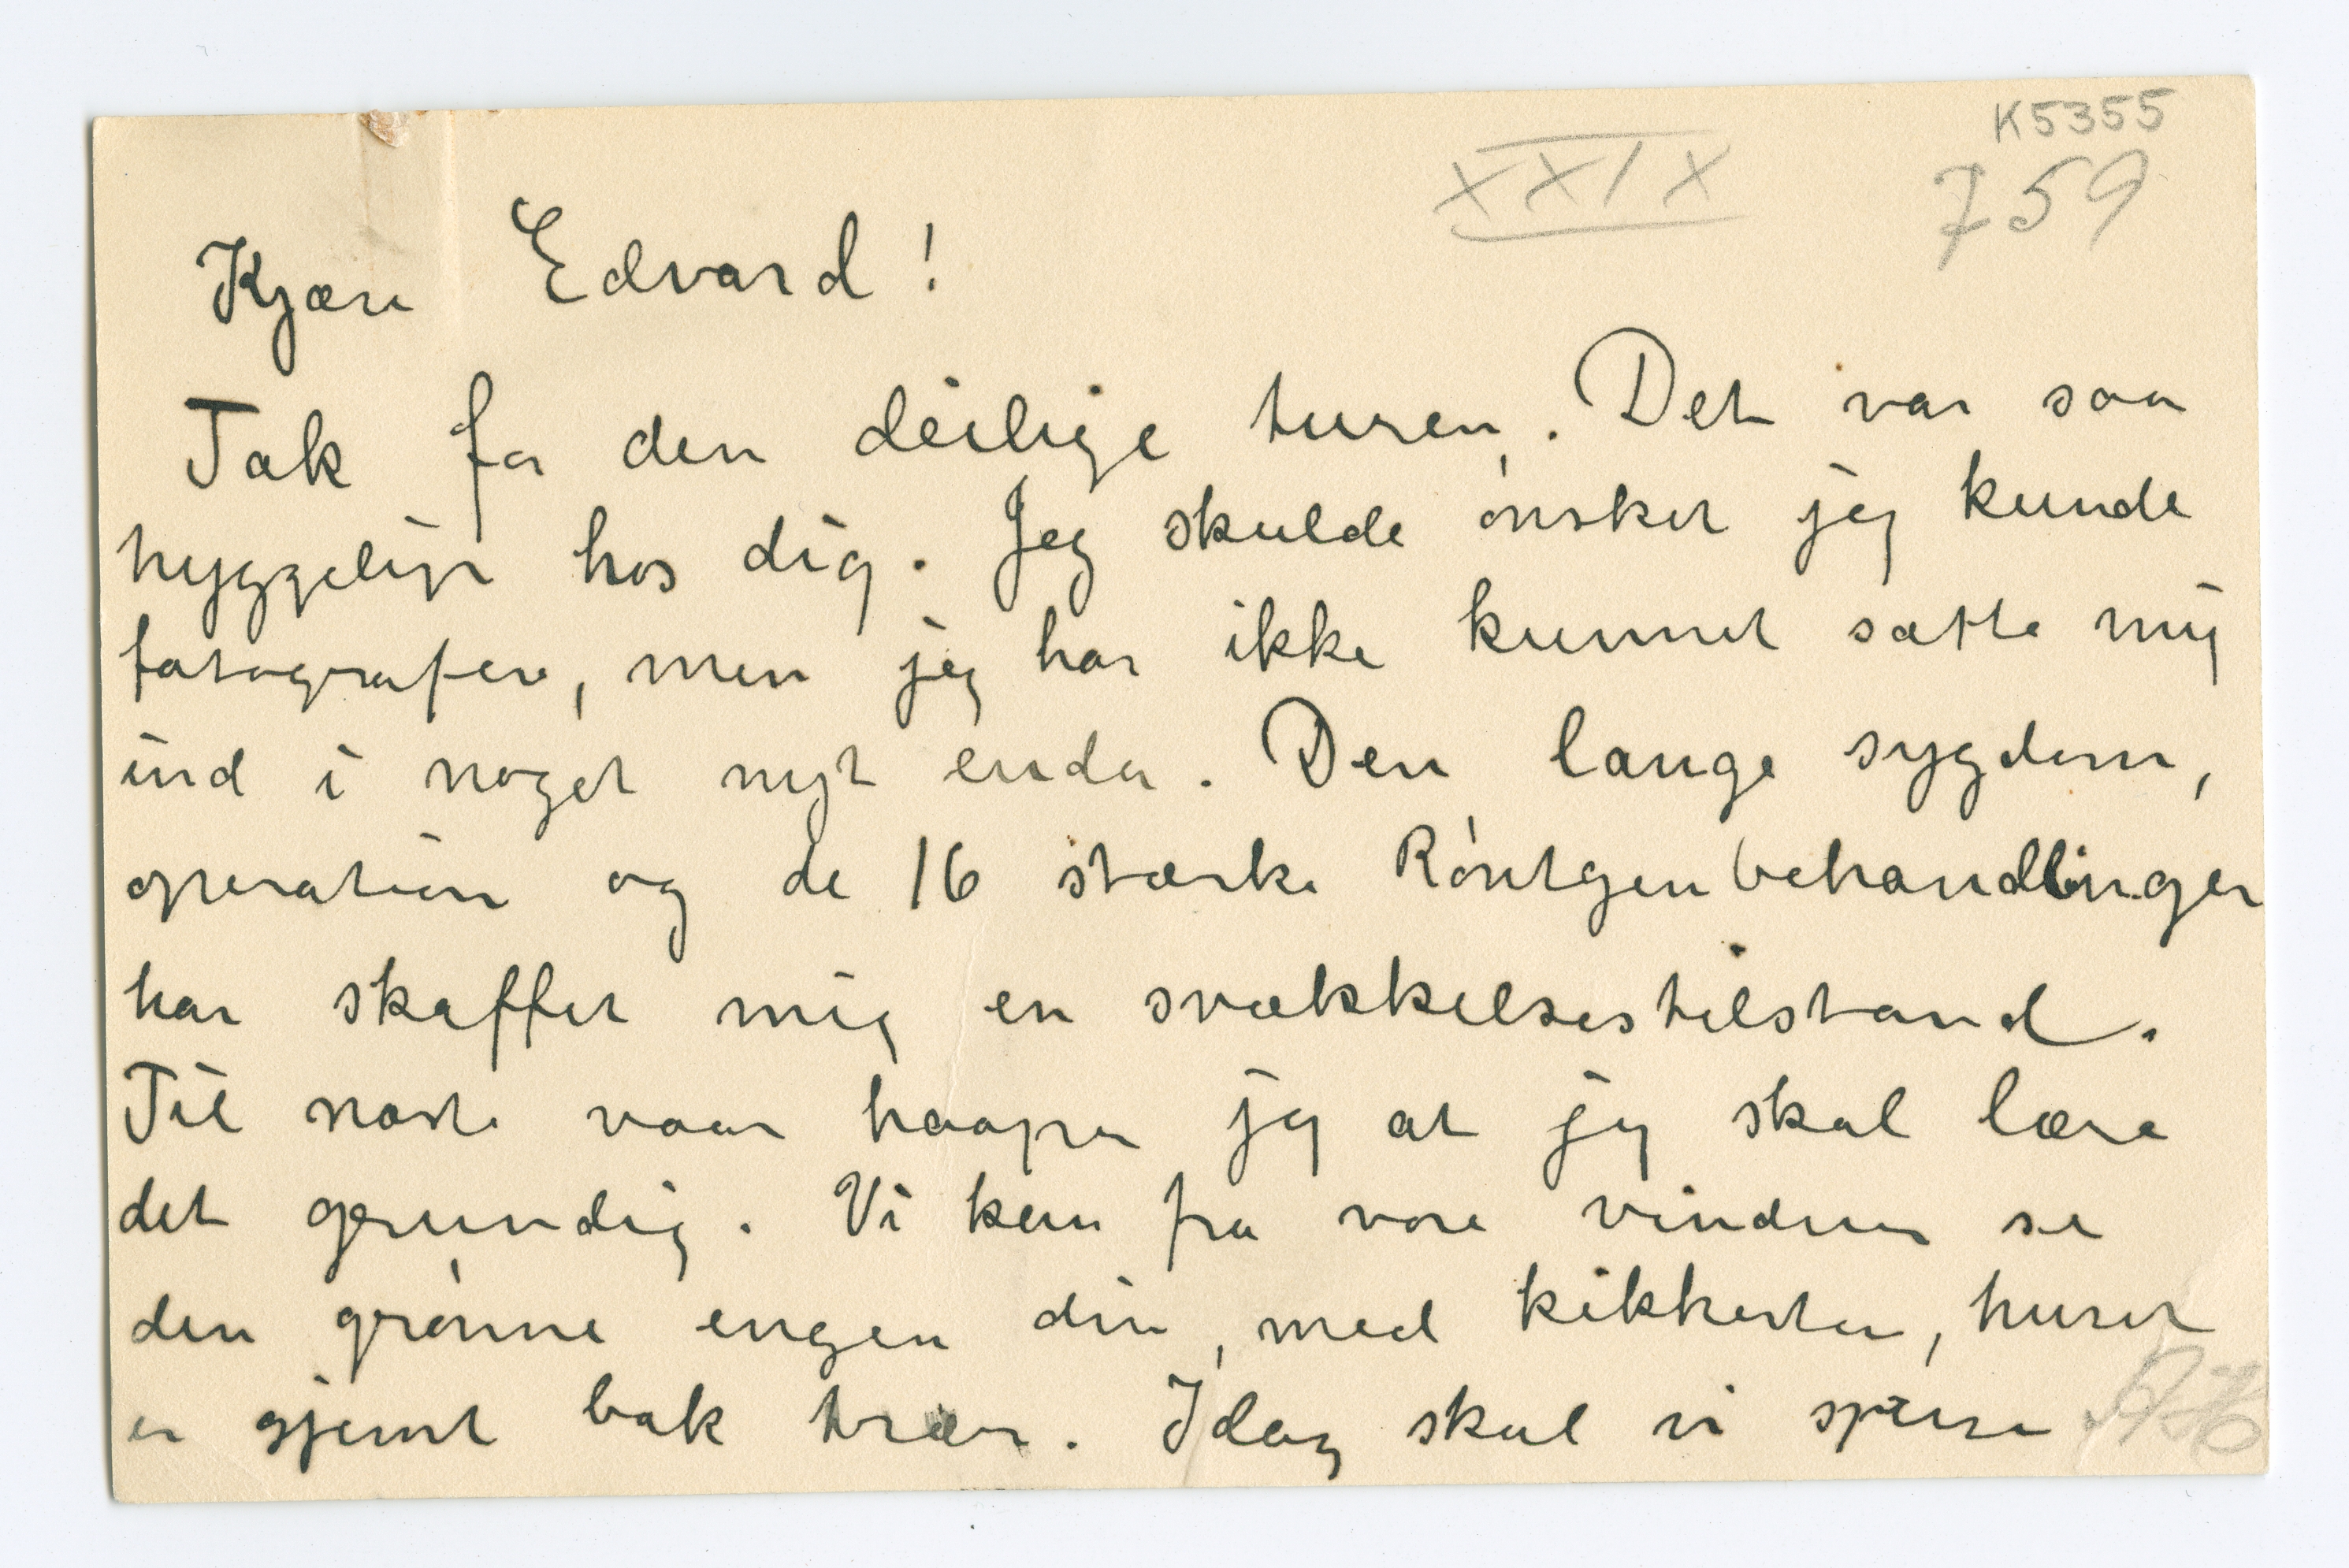 K5355
XXIX 759
Kjære Edvard!
Tak for den deilige turen. Det var saa
hyggeligt hos dig. Jeg skulde ønsket jeg kunde
fotografere, men jeg har ikke kunnet sætte mig
ind i noget nyt enda. Den lange sygdom,
operation og de 16 stærke Røntgenbehandlinger
har skaffet mig en svækkelsestilstand.
Til næste vaar haaper jeg at jeg skal lære
det grundig. Vi kan fra vore vinduer se
den grønne engen din, med kikkerten, huset
er gjemt bak trær. Idag skal vi spise